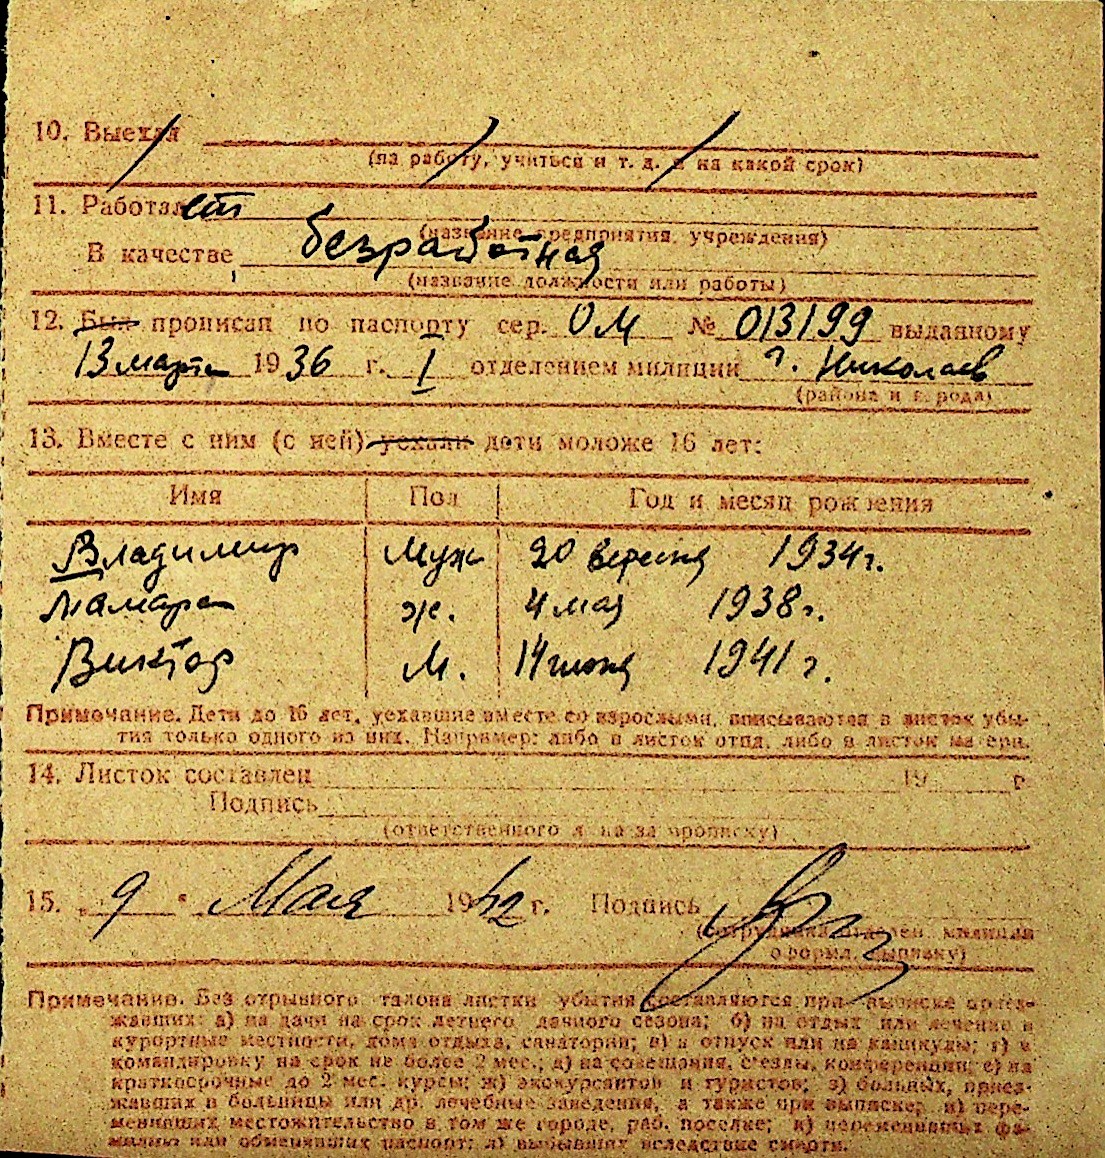 10. Выехал
(на работу, учиться и т. д. и на какой срок)
11. Работает
(название предприятия, учреждения)
В качестве безработная
(название должности или работы)
12. Был прописан по паспорту сер. ОМ № 013199 выданному
13 марта 1936 г. I отделением милиции г. Николаев
(района и города)
13. Вместе с ним (с ней) уехали дети моложе 16 лет:
Имя Пол Год и месяц рождения
Владимир муж 20 вересня 1934 г.
Тамара ж. 4 мая 1938 г.
Виктор М. 14 июня 1941 г.
Примечание. Дети до 16 лет, уехавшие вместе со взрослыми, вписываются в листок убы-
тия только одного из них. Например: либо в листок отца, либо в листок матери.
14. Листок составлен 19 г
Подпись
(ответственного лица за прописку)
15. „ 9 " Мая 1942 г. Подпись
(сотрудника отделен. милиции
оформл. выписку)
Примечание. Без отрывного талона листки убытия составляются при выписке приез-
жавших: а) на дачи на срок летнего дачного сезона; б) на отдых или лечение в
курортные местности, дома отдыха, санатории; в) в отпуск или на каникулы; г) в
командировку на срок не более 2 мес.; д) на совещания, съезды, конференции; е) на
краткосрочные до 2 мес. курсы; ж) экскурсантов и туристов; з) больных, приез-
жавших в больницы или др. лечебные заведения, а также при выписке; и) пере-
менивших местожительство в том же городе, раб. поселке; к) переменивших фа-
милию или обменявших паспорт; л) выбывших вследствие смерти.